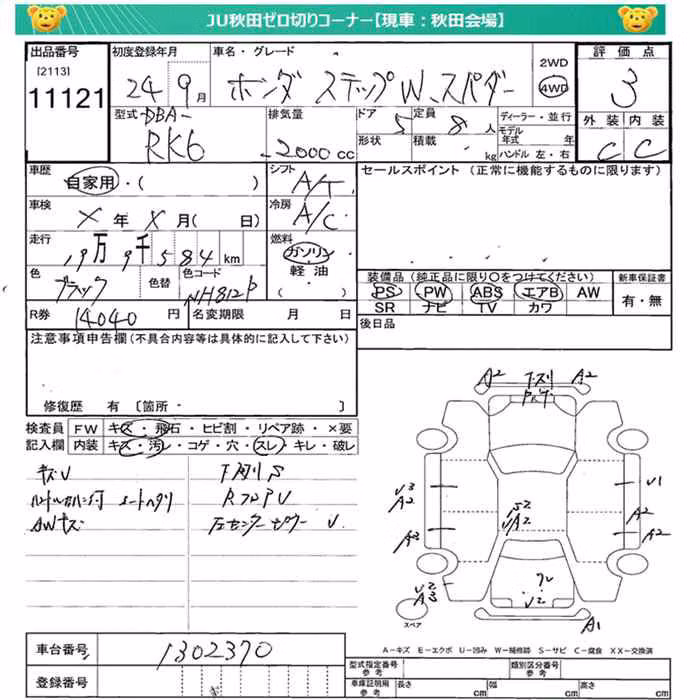 JU秋田ゼロ切りコーナー【現車：秋田会場】
出品番号 初度登録年月 車名・グレード 2WD 評価点
[2113] 24 9月 ホンダ ステップW スパダー 4WD 3
11121
型式 DBA- 排気量 ドア 定員 ディーラー・並行 外装 内装
RK6 2000 cc 5 8人 モデル年式 年 C C
形状 積載 kg ハンドル 左・右
車歴 シフト セールスポイント (正常に機能するものに限ります)
自家用・( ) A/T
車検 冷房
X年 X月( 日) A/C
走行 燃料
19万9千584km ガソリン
色 色替 色コード 軽油
ブラック NH812P ( )
装備品 (純正品に限り○をつけてください) 新車保証書
PS PW ABS エアB AW 有・無
SR ナビ TV カワ
R券 14040円 名変期限 月 日
後日品
注意事項申告欄(不具合内容等は具体的に記入して下さい)
修復歴 有 [箇所・ ]
検査員 FW キズ・飛石・ヒビ割・リペア跡・×要
記入欄 内装 キズ・汚レ・コゲ・穴・スレ・キレ・破レ
キズU 下廻りS
RフロアU
AWキズ 左センターピラー U
A2 A2
U3 U1
A2 A2
A3 A2
S2
UA2
U2
A3
U2
A1
スペア
A－キズ E－エクボ U－凹み W－補修跡 S－サビ C－腐食 XX－交換済
車台番号 1302370
登録番号
型式指定番号 参考 類別区分番号 参考
車庫証明用 参考 長さ cm 幅 cm 高さ cm